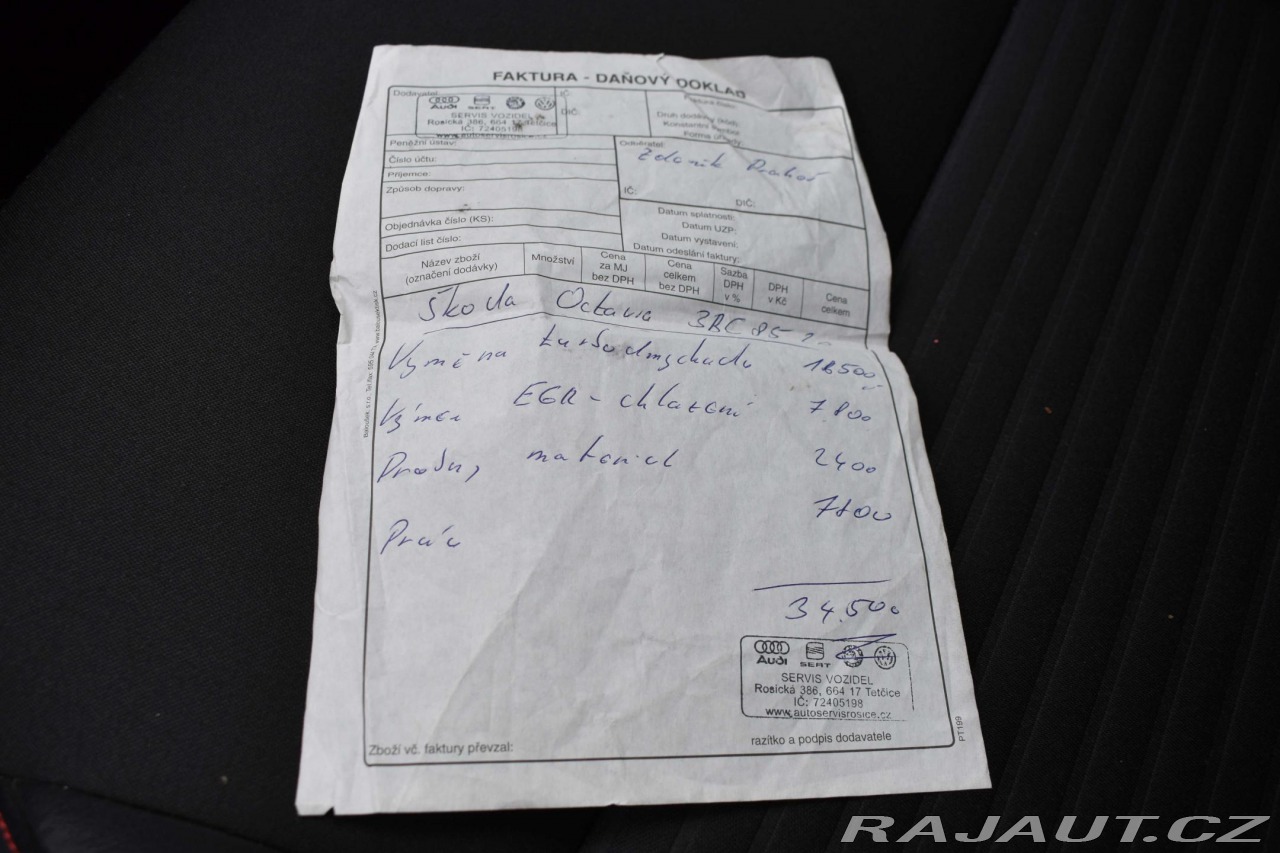 FAKTURA - DAŇOVÝ DOKLAD
Dodavatel:
Audi SEAT
SERVIS VOZIDEL
Rosická 386, 664 17 Tetčice
IČ: 72405198
www.autoservisrosice.cz
IČ:
DIČ:
Faktura číslo:
Druh dodávky (kód):
Konstantní symbol:
Forma úhrady:
Peněžní ústav:
Číslo účtu:
Příjemce:
Způsob dopravy:
Objednávka číslo (KS):
Dodací list číslo:
Odběratel:
IČ:
DIČ:
Datum splatnosti:
Datum UZP:
Datum vystavení:
Datum odeslání faktury:
Název zboží (označení dodávky)
Množství
Cena za MJ bez DPH
Cena celkem bez DPH
Sazba DPH v %
DPH v Kč
Cena celkem
Škoda Octavia 3BC 85
Výměna turbodmychadla
Výměn EGR - chlazení 7800
materiál 2400
Práce
34.500
Audi SEAT
SERVIS VOZIDEL
Rosická 386, 664 17 Tetčice
IČ: 72405198
www.autoservisrosice.cz
Zboží vč. faktury převzal:
razítko a podpis dodavatele
PT199
RAJAUT.CZ